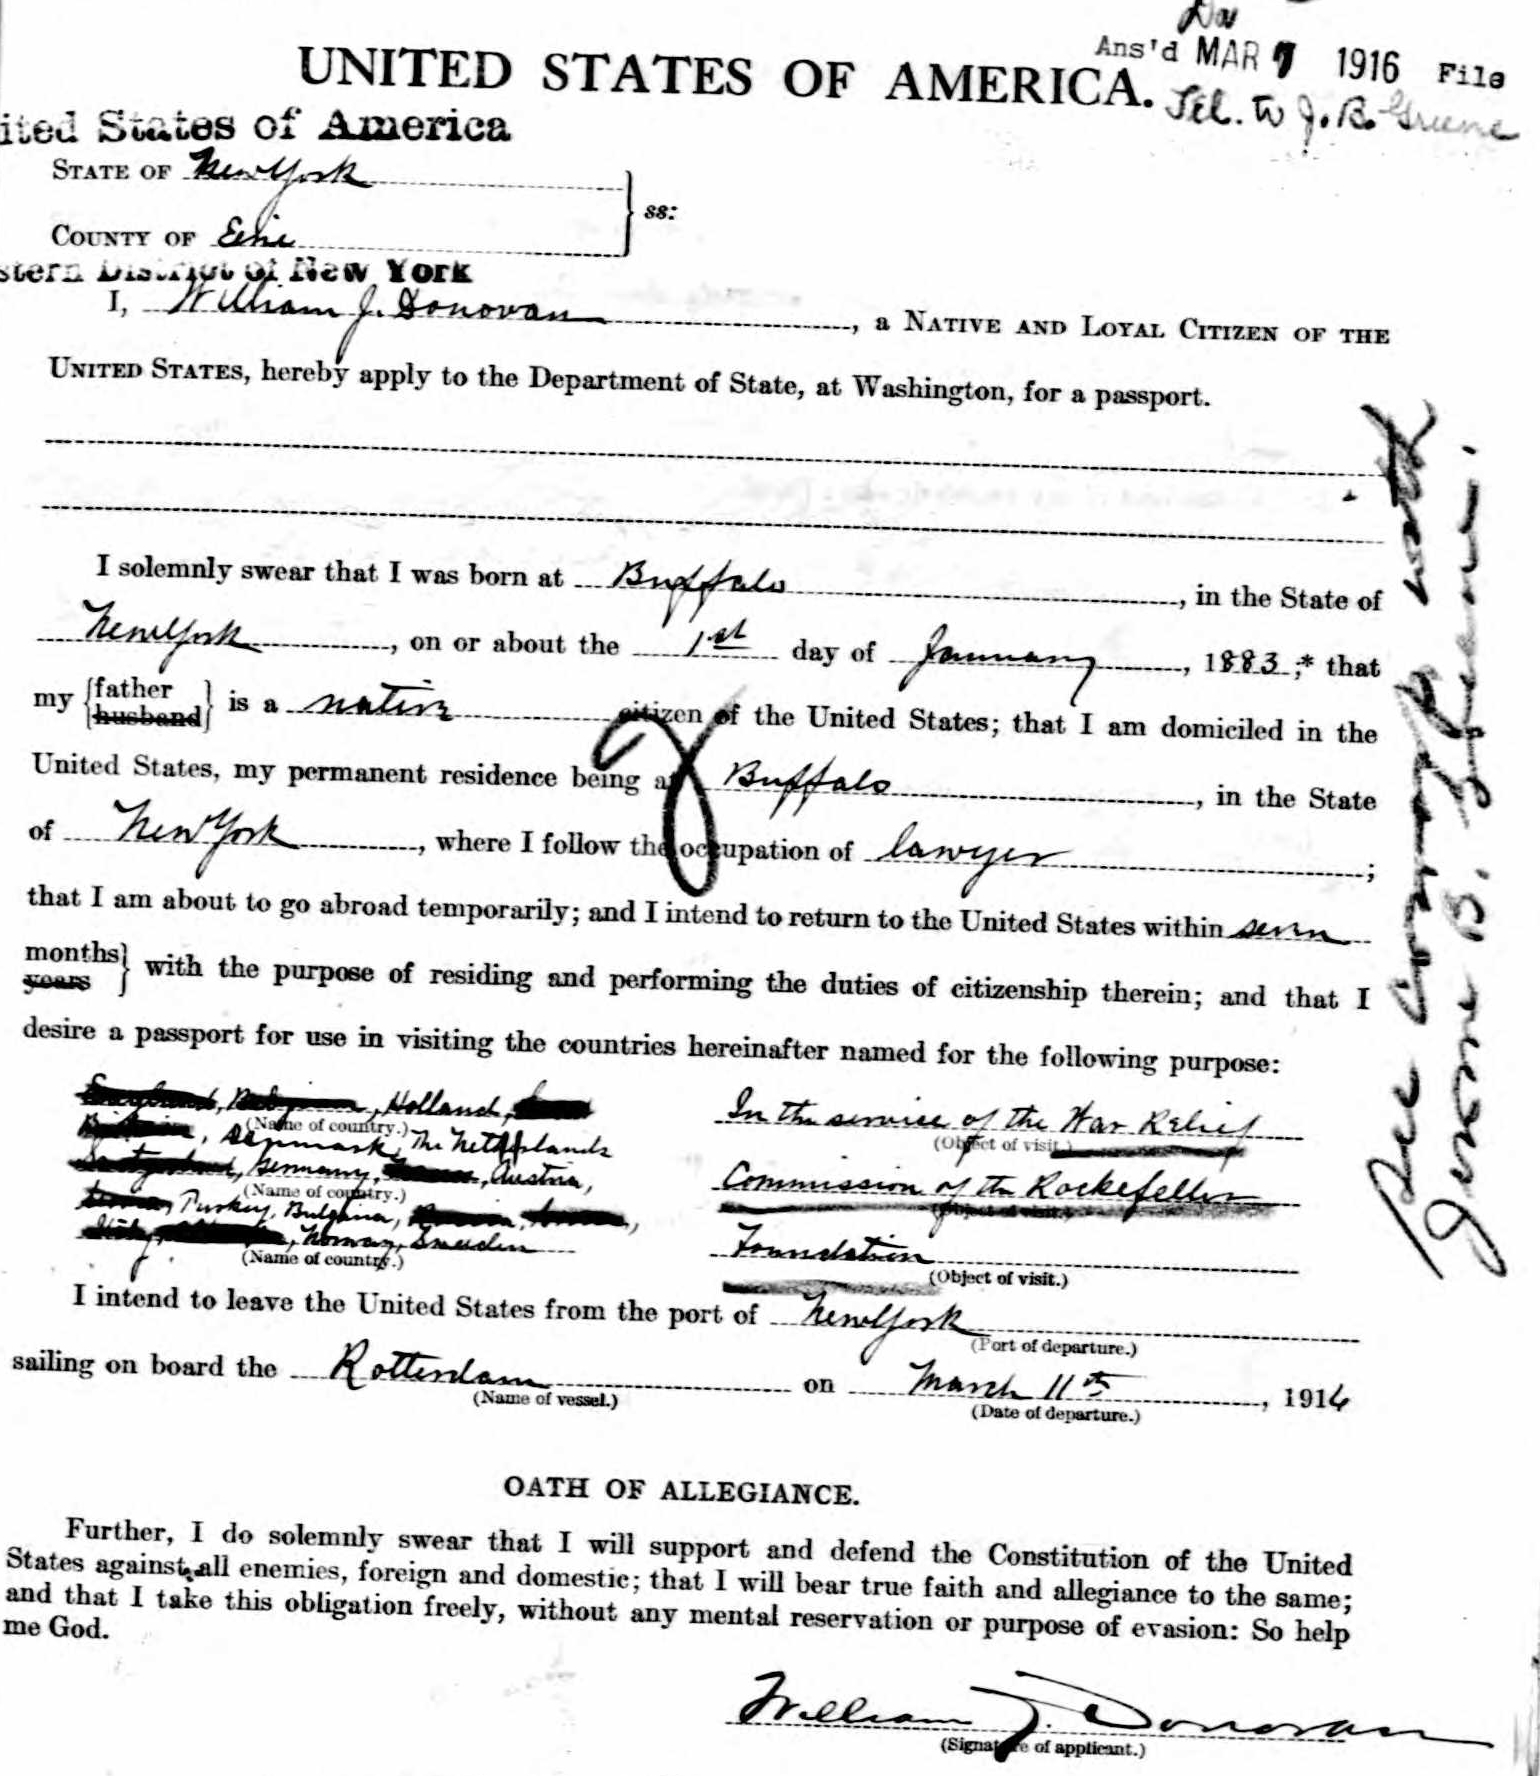 Ans'd MAR 7 1916 File
UNITED STATES OF AMERICA.
Tel. to J. B. Greene
ited States of America
STATE OF New York
ss:
COUNTY OF Erie
stern District of New York
I, William J. Donovan, a NATIVE AND LOYAL CITIZEN OF THE
UNITED STATES, hereby apply to the Department of State, at Washington, for a passport.
I solemnly swear that I was born at Buffalo, in the State of
New York, on or about the 1st day of January, 1883;* that
my {father husband} is a native citizen of the United States; that I am domiciled in the
United States, my permanent residence being at Buffalo, in the State
of New York, where I follow the occupation of lawyer;
that I am about to go abroad temporarily; and I intend to return to the United States within seven
months} years with the purpose of residing and performing the duties of citizenship therein; and that I
desire a passport for use in visiting the countries hereinafter named for the following purpose:
Holland, In the service of the War Relief
(Name of country.) (Object of visit.)
Denmark, The Netherlands
Germany, Austria, Commission of the Rockefeller
(Name of country.) (Object of visit.)
Turkey, Bulgaria,
Norway, Sweden Foundation
(Name of country.) (Object of visit.)
I intend to leave the United States from the port of New York
(Port of departure.)
sailing on board the Rotterdam on March 11th, 1916
(Name of vessel.) (Date of departure.)
OATH OF ALLEGIANCE.
Further, I do solemnly swear that I will support and defend the Constitution of the United
States against all enemies, foreign and domestic; that I will bear true faith and allegiance to the same;
and that I take this obligation freely, without any mental reservation or purpose of evasion: So help
me God.
William J. Donovan
(Signature of applicant.)
See corresp with
Jerome B. Greene.